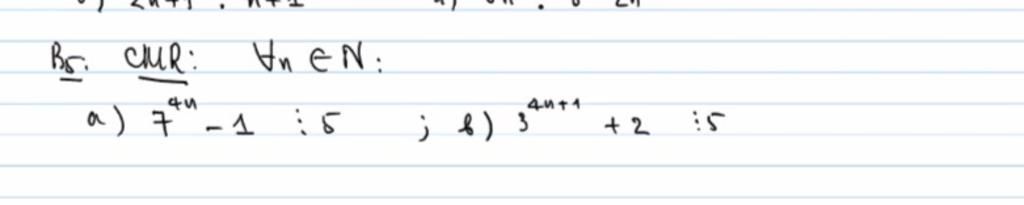 B5. CMR: ∀n ∈ N:
a) 7^{4n} - 1 ⋮ 5 ; b) 3^{4n+1} + 2 ⋮ 5